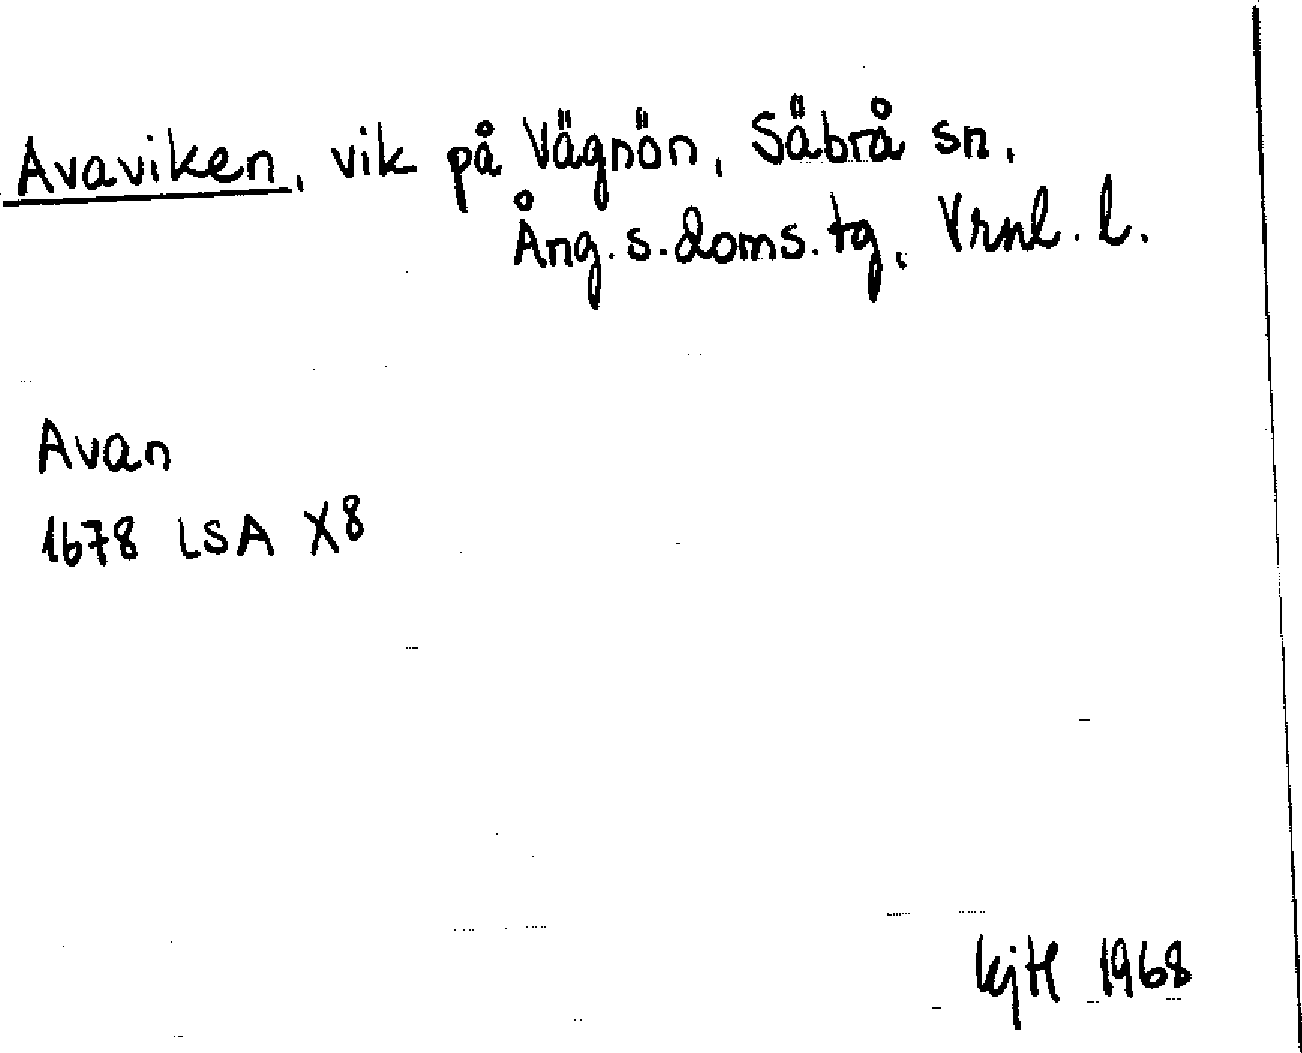 Avaviken, vik på Vägnön, Säbrå sn.
Ång. s. doms. tg, Vrnl. l.
Avan
1678 LSA X8
kjH 1968